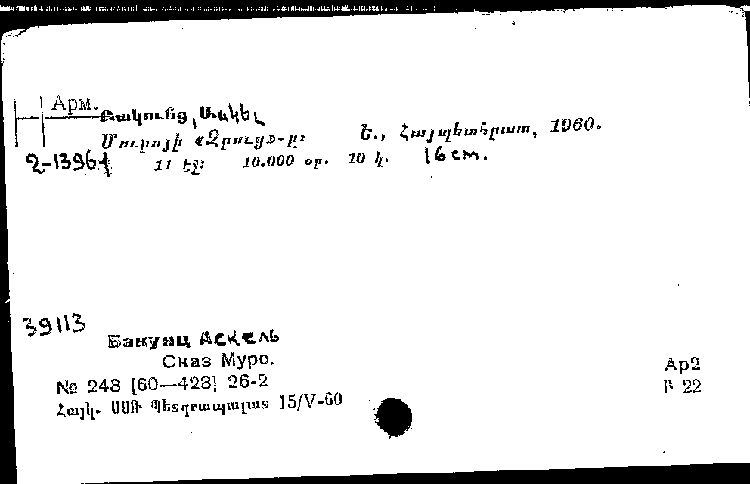 Арм.
Բակունց, Ակսել
Մուրոյի «Զրույց»-ը։ Ե., Հայպետհրատ, 1960.
2-13961 11 էջ։ 10.000 օր. 10 կ. 16 см.
39113
Бакунц Аксель
Сказ Муро.
№ 248 [60—423] 26-2
Ар2
Հայկ. ՍՍՌ Պետգրապալատ 15/V-60
Б 22